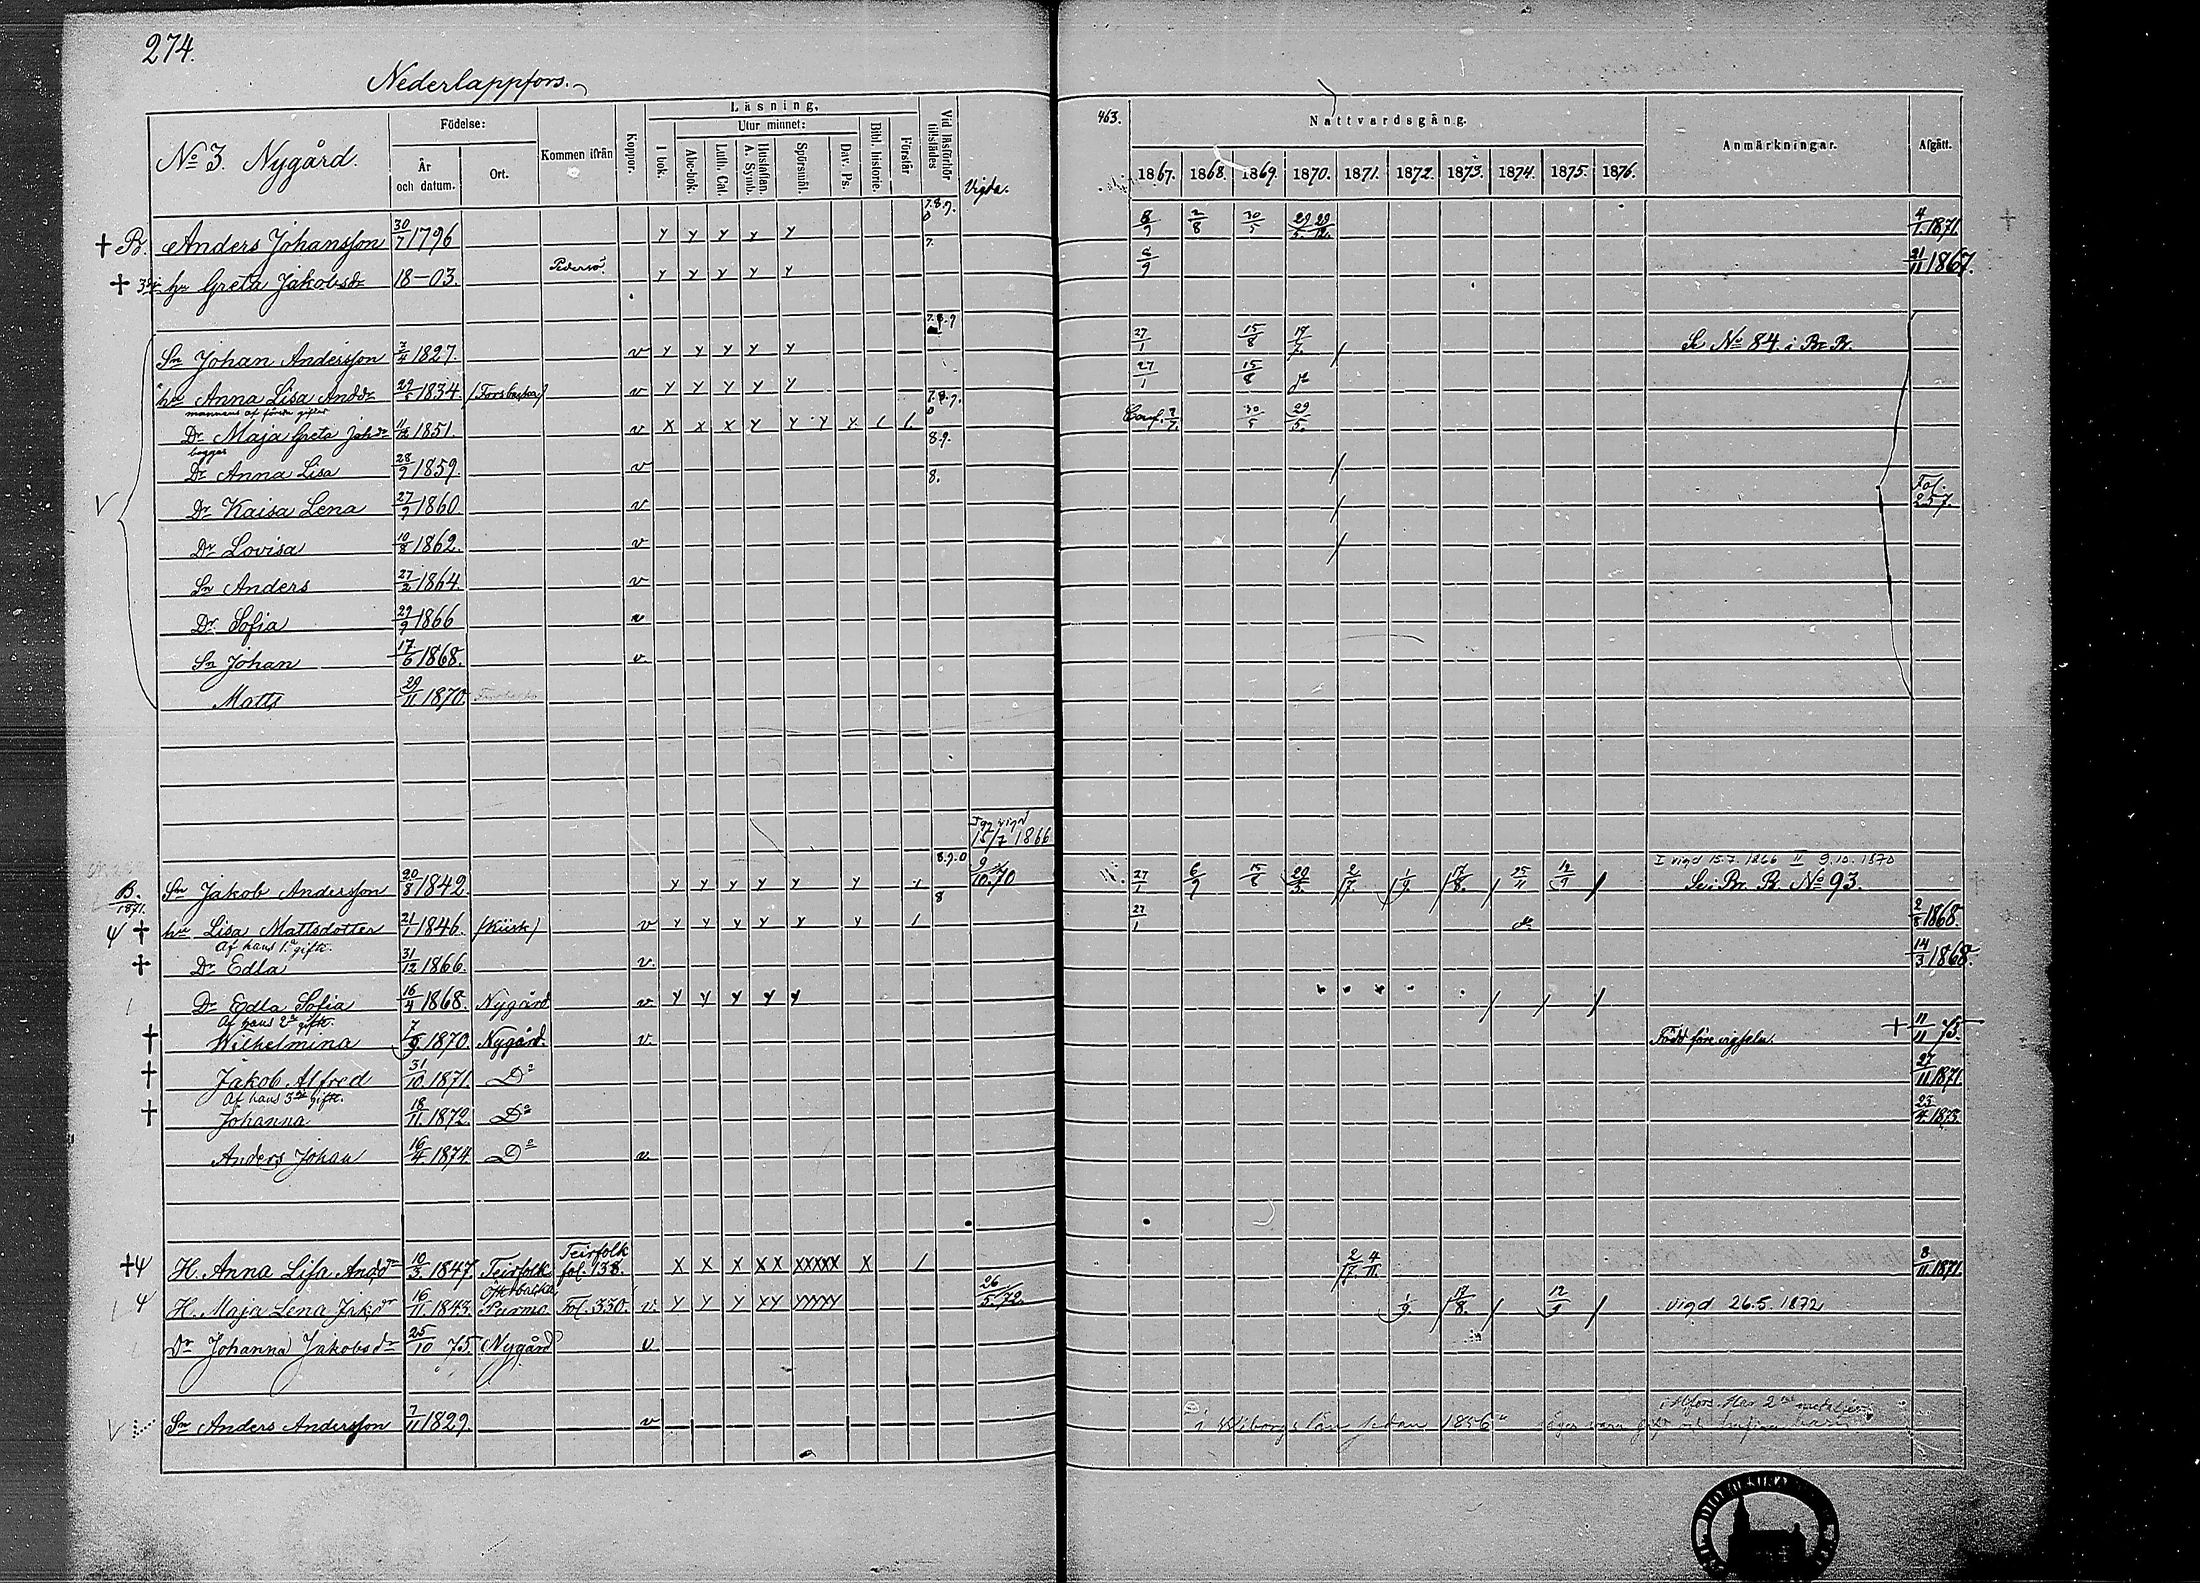 274.
Nederlappfors.
No 3. Nygård.
Födelse:
År och datum.
Ort.
Kommen ifrån
Koppor.
Läsning.
I bok.
Utur minnet:
Abc-bok.
Luth. Cat.
Hustaflan. A. Symb.
Spörsmål.
Dav. Ps.
Bibl. historie.
Förstår
Vid läsförhör tillstädes
Vigda.
463.
Nattvardsgång.
1867. 1868. 1869. 1870. 1871. 1872. 1873. 1874. 1875. 1876.
Anmärkningar.
Afgått.
† B. Anders Johansson 30/7 1796 y y y y y 7.8.9. 0 8/9 2/8 30/5 29/5. 29/12. 4/1. 1871.
† hu Greta Jakobsdr 18-03. Pedersö. y y y y y 7. 6/9 21/11 1867.
Sn Johan Andersson 3/4 1827. v y y y y y 7.8.9 27/1 15/8 17/7. / Se No 84 i Br. B.
hu Anna Lisa Anddr 29/ 1834 (Forsbacka) v y y y y y 27/1 15/8 do
mannens af första gifter
Dr Maja Greta Johdr 11/12 1851. v x x x y y y y 7.8.9. 0 Conf. 7/7. 30/5 29/5.
begges
Dr Anna Lisa 28/9 1859. v 8.9. /
Dr Kaisa Lena 27/9 1860 v 8. / Fol. 257.
Dr Lovisa 10/8 1862. v /
Sn Anders 27/2 1864. v
Dr Sofia 29/9 1866 v
Sn Johan 17/6 1868. v.
Matts 29/11 1870.
Ign vigd 15/7 1866
B. 1871. Sn Jakob Andersson 20/8 1842 y y y y y y 8.9.0 9/10. 70 27/1 6/9 15/8 29/5. 2/7. 1/9. 17/8. / 25/11 12/9 / I vigd 15.7.1866 II 9.10.1870
Se i Br. B. No 93.
ψ † hu Lisa Mattsdotter 21/1 1846. (Kiisk) v y y y y y y / 8 27/1 do 2/8 1868.
Af hans 1a gifte.
† Dr Edla 31/12 1866. v. 14/3 1868.
Dr Edla Sofia 16/4 1868. Nygård v y y y y y / / /
Af hans 2a gifte.
† Wilhelmina 7/9 1870. Nygård. v. Född före vigseln. † 11/11 75.
† Jakob Alfred 31/10. 1871. Do 27/11 1871.
Af hans 3dje gifte.
† Johanna 18/11. 1872. Do 23/4. 1873.
Anders Johan 16/4. 1874. Do v.
†ψ H. Anna Lisa Andsdr 10/3. 1847. Teirfolk Teirfolk fol. 138. x x x x x xxxxx x / 2/7. 4/11. 8/11. 1871.
ψ H. Maja Lena Jakdr 16/11. 1843. Purmo Fol. 330. v. y y y yy yyyyy 26/5. 72. 1/9. 17/8. / 12/9 / vigd 26.5.1872
Dr Johanna Jakobsdr 25/10 75. Nygård v
V Sn Anders Andersson 7/11 1829. v i Wiborgs län sedan 1856